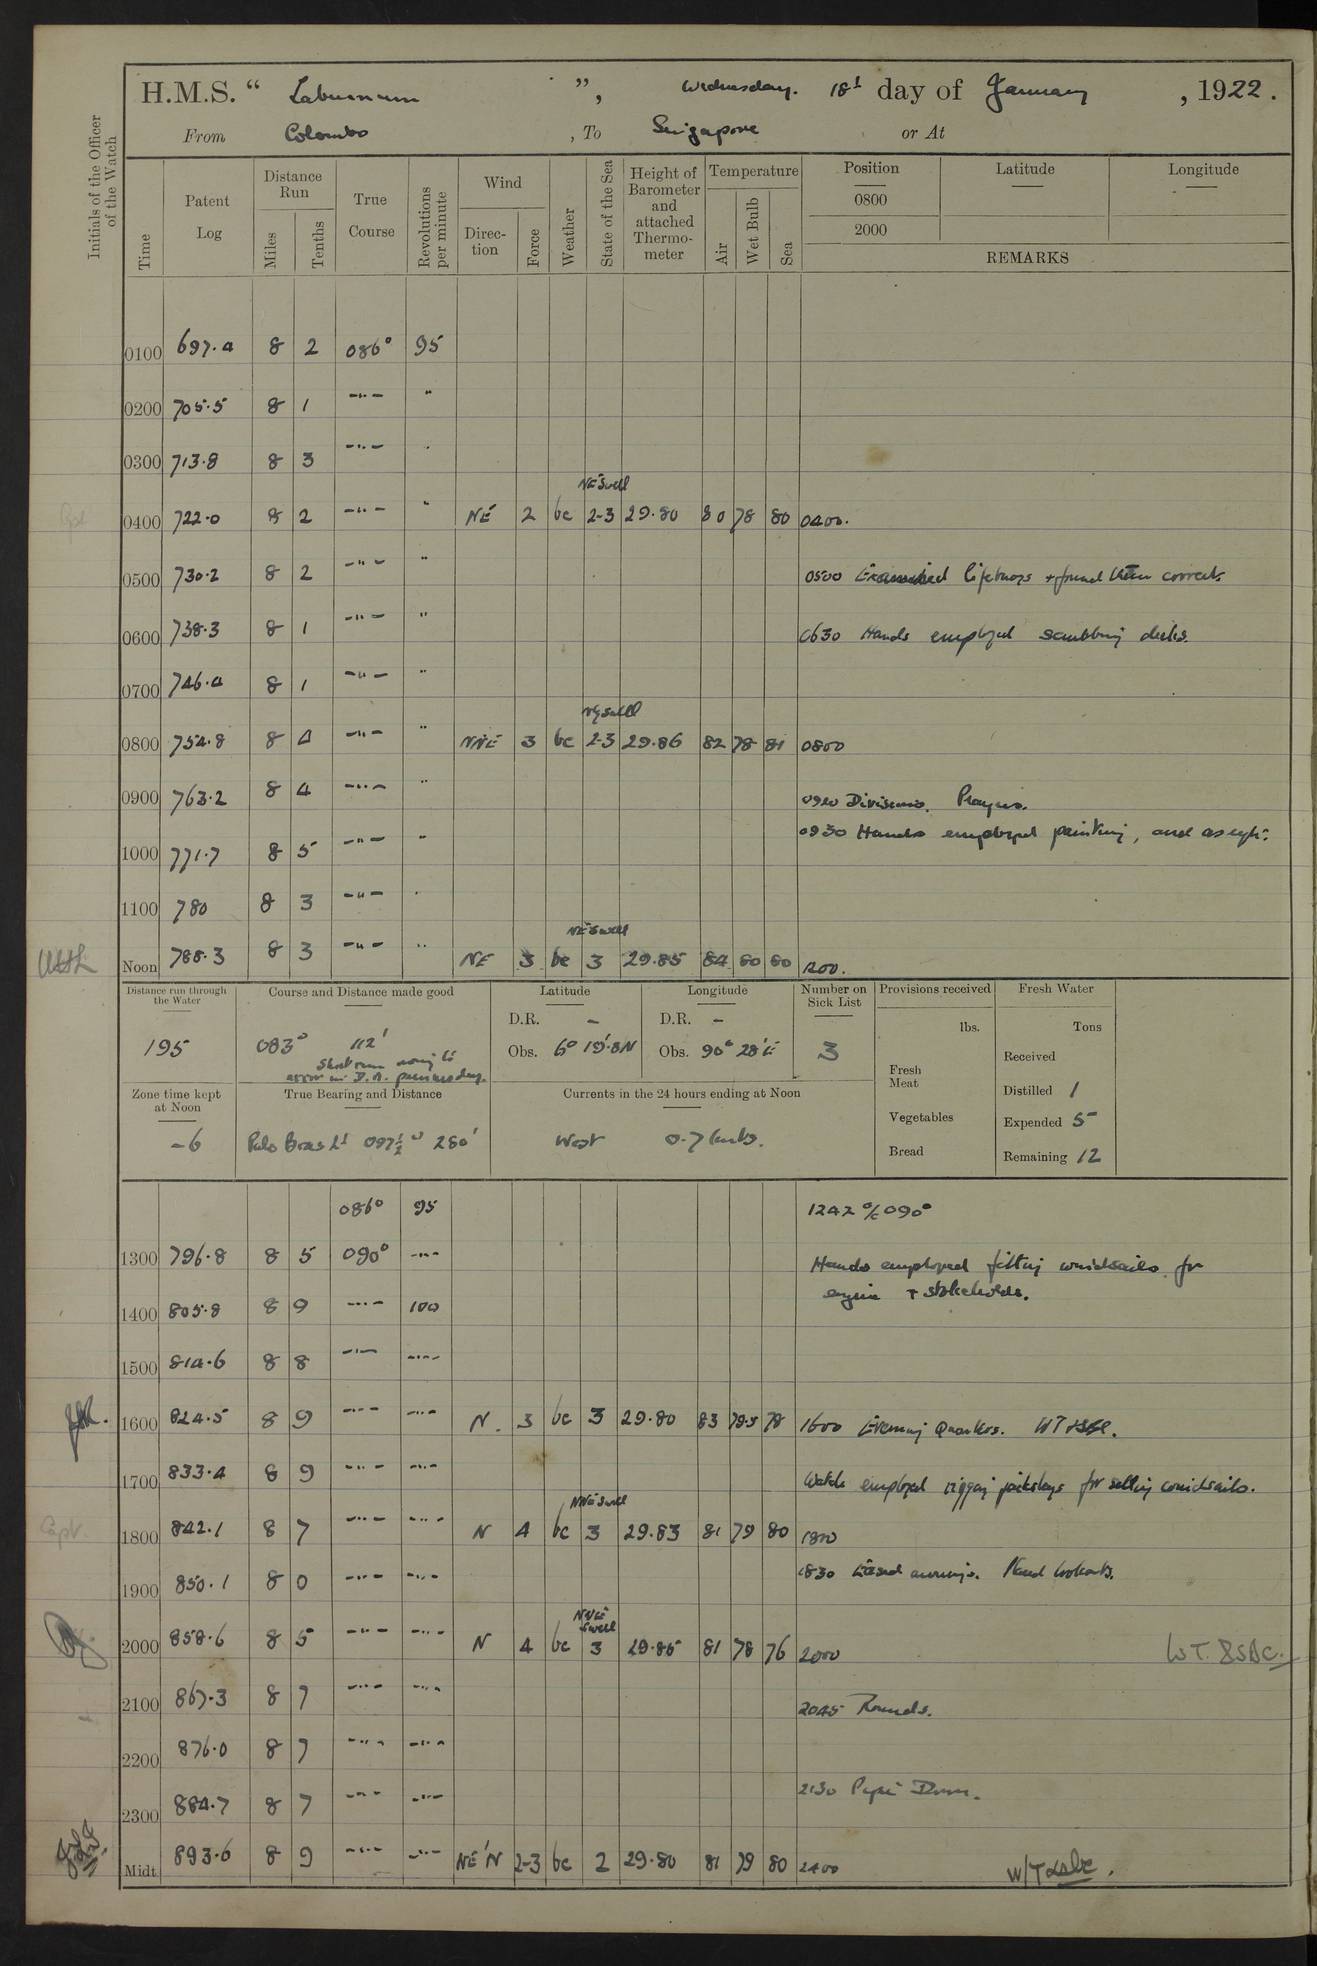 H.M.S. " Laburnum ", Wednesday. 18th day of January, 1922.
From Colombo, To Singapore or At
Initials of the Officer of the Watch
Time
Patent Log
Distance Run
Miles
Tenths
True Course
Revolutions per minute
Wind
Direction
Force
Weather
State of the Sea
Height of Barometer and attached Thermometer
Temperature
Air
Wet Bulb
Sea
Position
0800
2000
Latitude
Longitude
REMARKS
0100 697.4 8 2 086° 95
0200 705.5 8 1 -"- "
0300 713.8 8 3 -"- "
NE Swell
0400 722.0 8 2 -"- " NE 2 bc 2-3 29.80 80 78 80 0400.
0500 730.2 8 2 -"- " 0500 Examined lifebuoys + found them correct.
0600 738.3 8 1 -"- " 0630 Hands employed scrubbing decks.
0700 746.4 8 1 -"- "
NE Swell
0800 754.8 8 4 -"- " NNE 3 bc 2-3 29.86 82 78 81 0800
0900 763.2 8 4 -"- " 0920 Divisions. Prayers.
0930 Hands employed painting, and as reqte.
1000 771.7 8 5 -"- "
1100 780 8 3 -"- "
NE Swell
Noon 788.3 8 3 -"- " NE 3 bc 3 29.85 84 80 80 1200.
Distance run through the Water
195
Course and Distance made good
083° 112'
Short run owing to
error in D.R. previous day.
Latitude
D.R. -
Obs. 6° 19'.8N
Longitude
D.R. -
Obs. 90° 28'E
Number on Sick List
3
Provisions received
lbs.
Fresh Meat
Vegetables
Bread
Fresh Water
Tons
Received
Distilled 1
Expended 5
Remaining 12
Zone time kept at Noon
-6
True Bearing and Distance
Pulo Bras Lt 097½° 280'
Currents in the 24 hours ending at Noon
West 0.7 knots.
086° 95 1242 a/c 090°
1300 796.8 8 5 090° -"- Hands employed fitting windsails for
engine + stokeholds.
1400 805.8 8 9 -"- 100
1500 814.6 8 8 -"- -"-
1600 824.5 8 9 -"- -"- N. 3 bc 3 29.80 83 79.5 78 1600 Evening Quarters. WT
1700 833.4 8 9 -"- -"- Watch employed rigging jackstays for setting windsails.
NNE Swell
1800 842.1 8 7 -"- -"- N 4 bc 3 29.83 81 79 80 1800
Capt.
1830 Eased awnings. Placed lookouts.
1900 850.1 8 0 -"- -"-
NNE Swell
2000 858.6 8 5 -"- -"- N 4 bc 3 29.85 81 78 76 2000 WT.
2100 867.3 8 7 -"- -"- 2045 Rounds.
2200 876.0 8 7 -"- -"-
2130 Pipe Down.
2300 884.7 8 7 -"- -"-
Midt. 893.6 8 9 -"- -"- NE'N 2-3 bc 2 29.80 81 79 80 2400 W/T